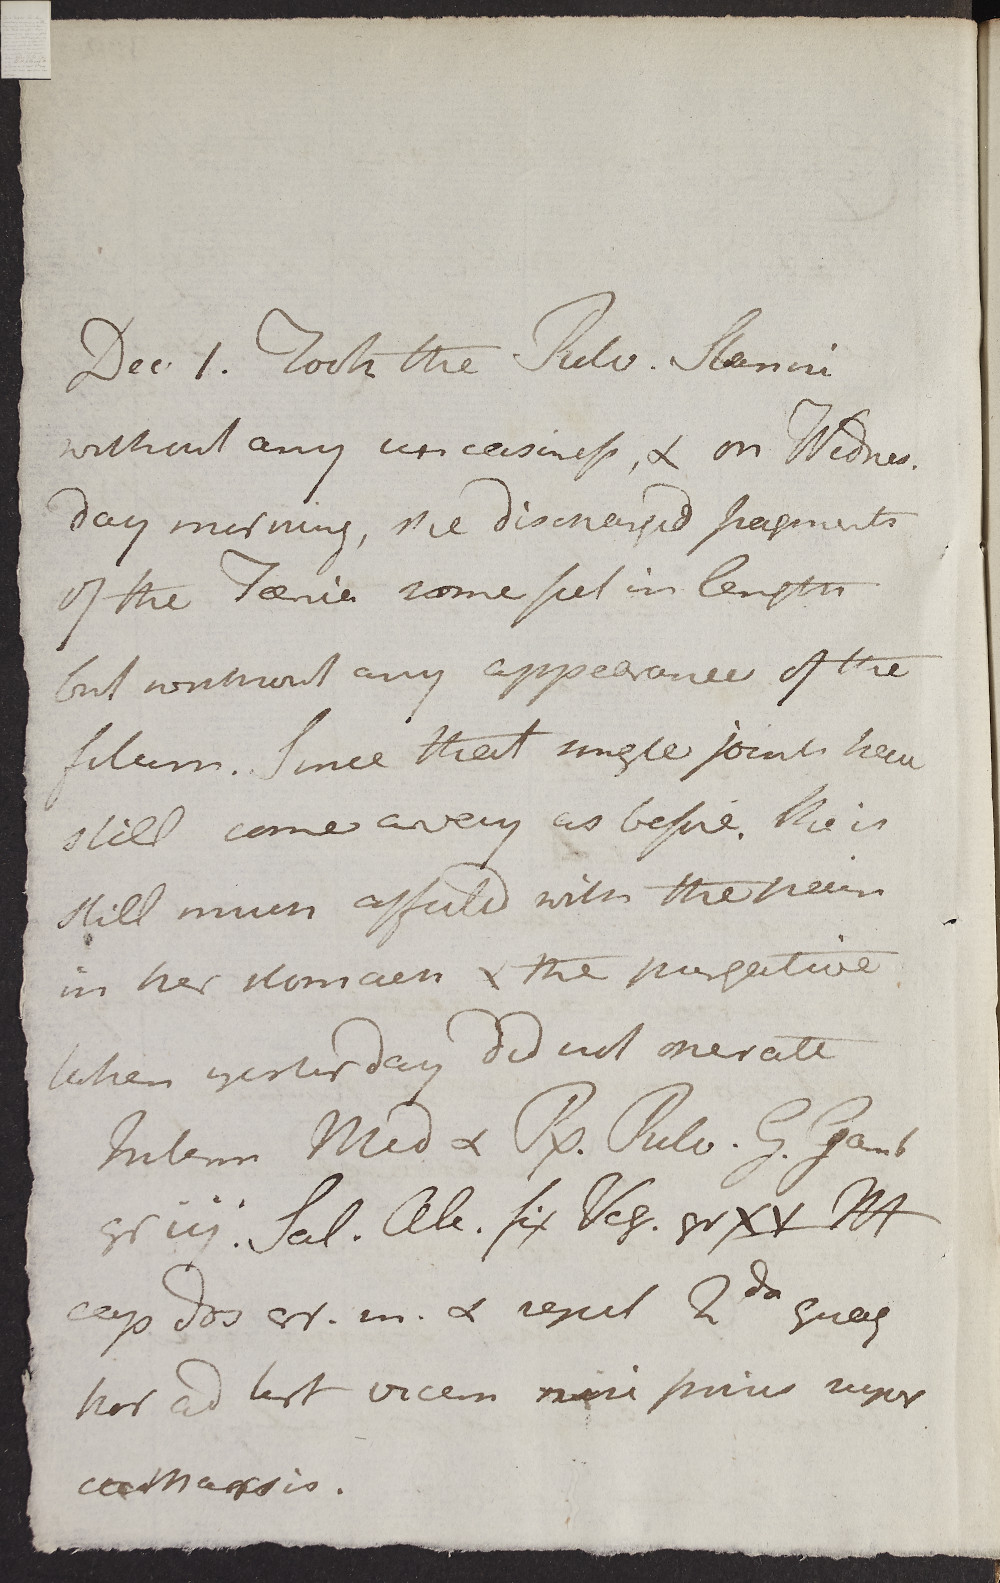 Dec. 1. Took the Pulv. Stanni
without any uneasiness, & on Wednes.
day morning, she discharged fragments
of the Tænia some feet in length
but without any appearance of the
filum. Since that single joints have
still come away as before. She is
still much affected with the pain
in her stomach & the purgative
taken yesterday did not operate
Interm Med & Rx. Pulv. G. Gamb
gr iij. Sal. Alk. fix Veg. gr XX M
cap dos cr. m. & repet 2da quaq
hor ad tert vicem nisi prius super
catharsis.